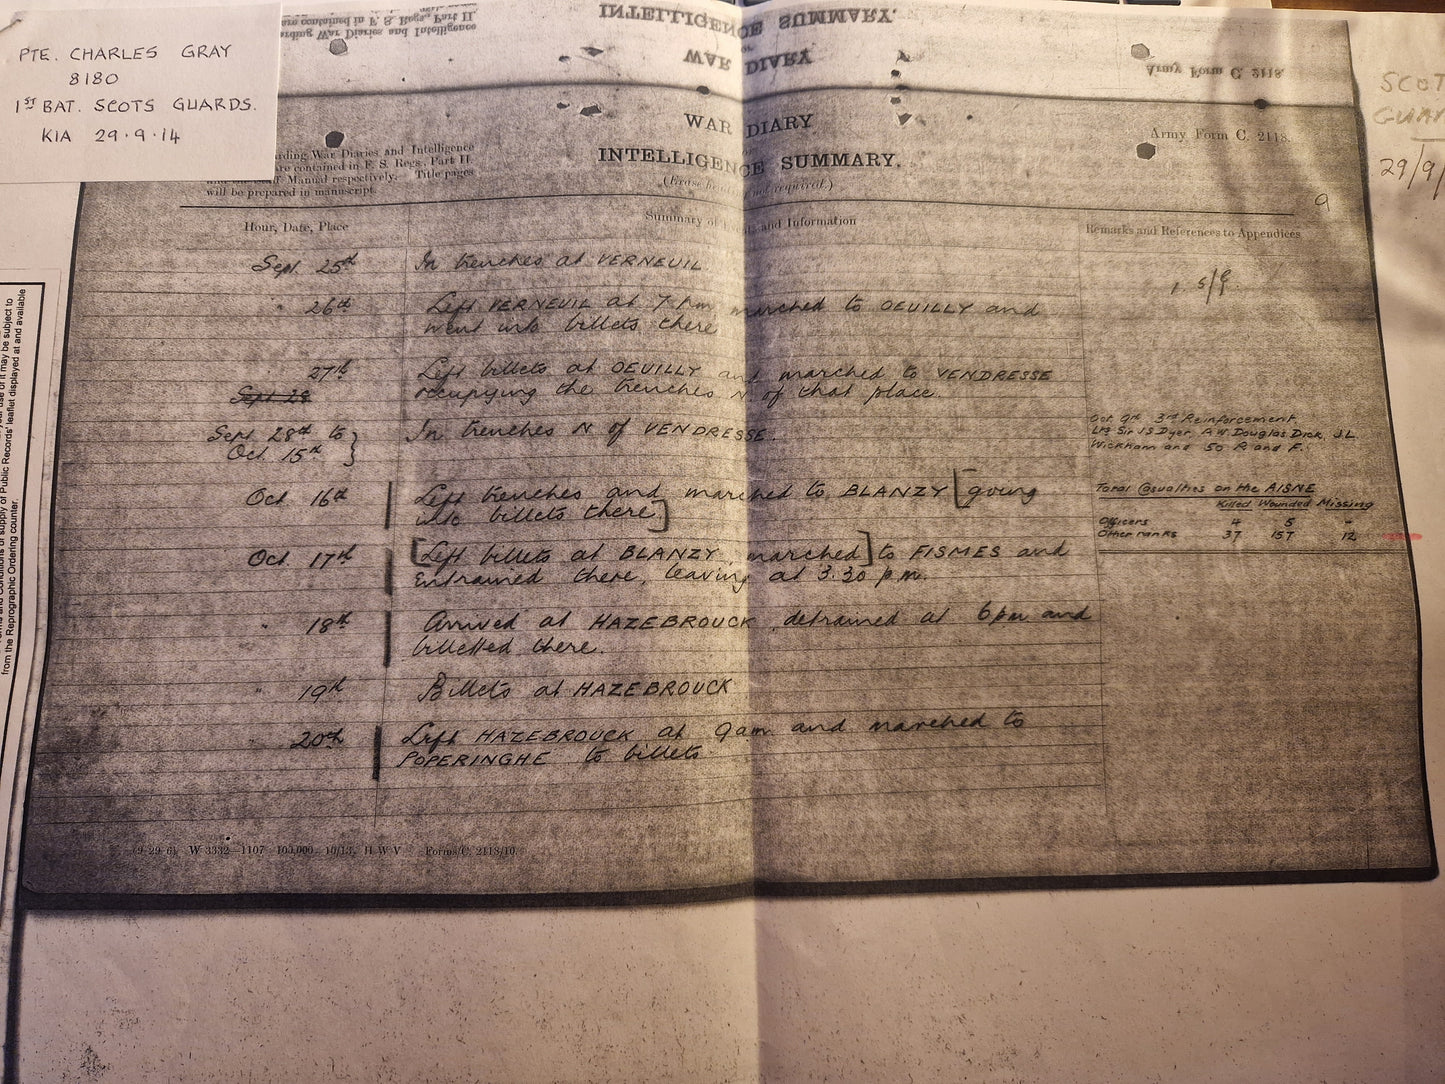 PTE. CHARLES GRAY
8180
1ST BAT. SCOTS GUARDS.
KIA 29.9.14
are contained in F. S. Regs., Part II.
arding War Diaries and Intelligence
INTELLIGENCE SUMMARY.
WAR DIARY
Army Form C. 2118.
SCOT
GUAR
29/9/
WAR DIARY
INTELLIGENCE SUMMARY.
Army Form C. 2118.
arding War Diaries and Intelligence
are contained in F. S. Regs., Part II.
Manual respectively. Title pages
will be prepared in manuscript.
(Erase not required.)
9
Hour, Date, Place
Summary of and Information
Remarks and References to Appendices
Sept. 25th In trenches at VERNEUIL
5/9.
" 26th Left VERNEUIL at 7 pm marched to OEUILLY and
went into billets there
27th Left billets at OEUILLY and marched to VENDRESSE
Sept 28 occupying the trenches N of that place.
Sept 28th to In trenches N of VENDRESSE.
Oct. 15th }
Oct 9th 3rd Reinforcement
Lts Sir J S Dyer, A.W. Douglas Dick, J L
Wickham and 50 R and F.
Oct 16th Left trenches and marched to BLANZY [going
into billets there]
Total Casualties on the AISNE
Killed Wounded Missing
Officers 4 5 -
Other ranks 37 157 12
Oct 17th [Left billets at BLANZY, marched] to FISMES and
Entrained there, leaving at 3.30 p.m.
" 18th Arrived at HAZEBROUCK, detrained at 6pm and
billetted there.
" 19th Billets at HAZEBROUCK
20th Left HAZEBROUCK at 9 am. and marched to
POPERINGHE to billets
(9-29-6) W 3332—1107 100,000 10/13. H W V Forms/C. 2118/10.
your use of it may be subject to
Terms and Conditions of supply of Public Records' leaflet displayed at and available
from the Reprographic Ordering counter.